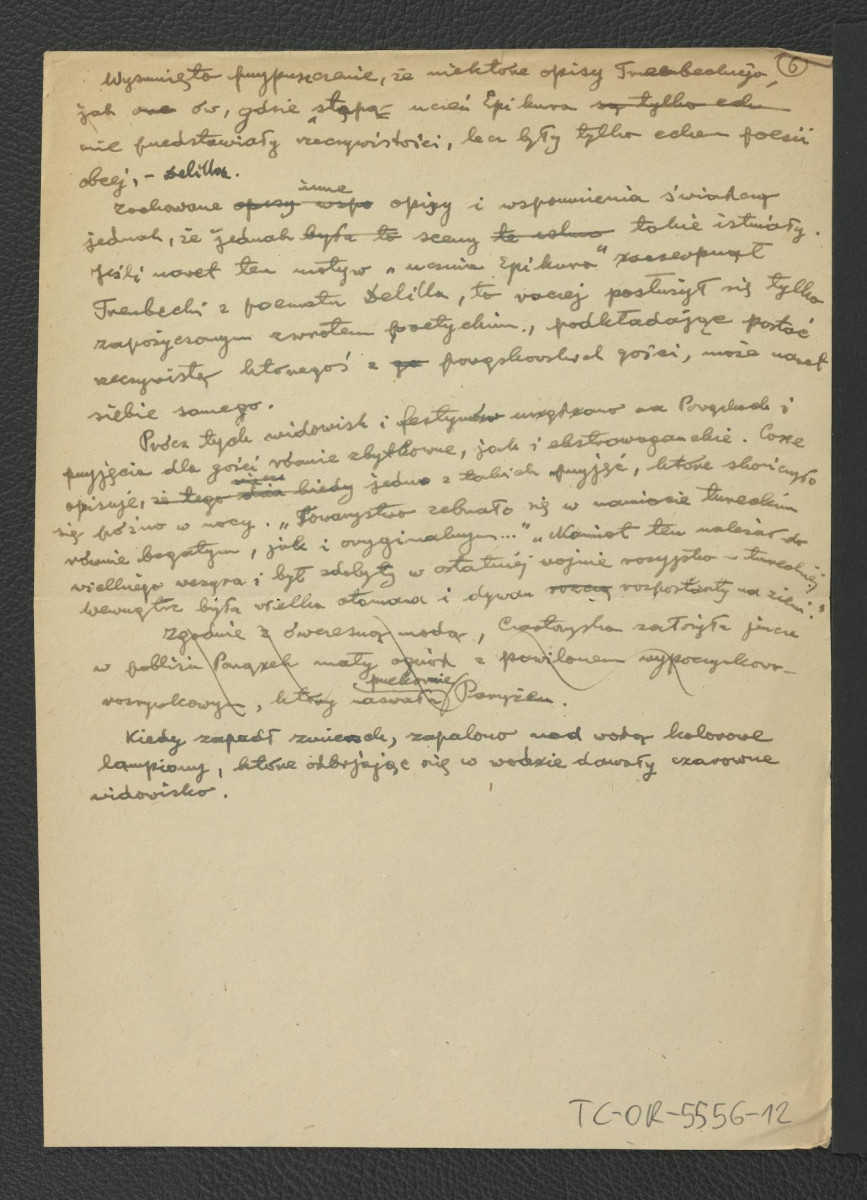 6
Wysunięto przypuszczenie, że niektóre opisy Trembeckiego,
jak one ów, gdzie stąpa uczeń Epikura są tylko echem
nie przedstawiały rzeczywistości, lecz były tylko echem poezji
obcej, - Delilla.
inne
Zachowane opisy wspo opisy i wspomnienia świadczą
jednak, że jednak była to sceny te takie istniały.
Jeśli nawet ten motyw „ucznia Epikura" zaczerpnął
Trembecki z poematu Delilla, to raczej posłużył się tylko
zapożyczonym zwrotem poetyckim, podkładając postać
rzeczywistą któregoś z go powązkowskich gości, może nawet
siebie samego.
Prócz tych widowisk i festynów urządzano na Powązkach i
przyjęcia dla gości równie zbytkowne, jak i ekstrawaganckie. Coxe
opisuje, że tego dnia kiedy jedno z takich przyjęć, które skończyło
się późno w nocy. „Towarzystwo zebrało się w namiocie tureckim
równie bogatym, jak i oryginalnym..." „Namiot ten należał do
wielkiego wezyra i był zdobyty w ostatniej wojnie rosyjsko-tureckiej;
wewnątrz była wielka otomana i dywan rozpostarty na ziemi."
Zgodnie z ówczesną modą, Czartoryska założyła jeszcze
w pobliżu Powązek mały ogród z pawilonem wypoczynkowo-
przekornie
rozrywkowym, który nazwała Paryżem.
Kiedy zapadł zmierzch, zapalono nad wodą kolorowe
lampiony, które odbijając się w wodzie dawały czarowne
widowisko.
TC-OR-5556-12